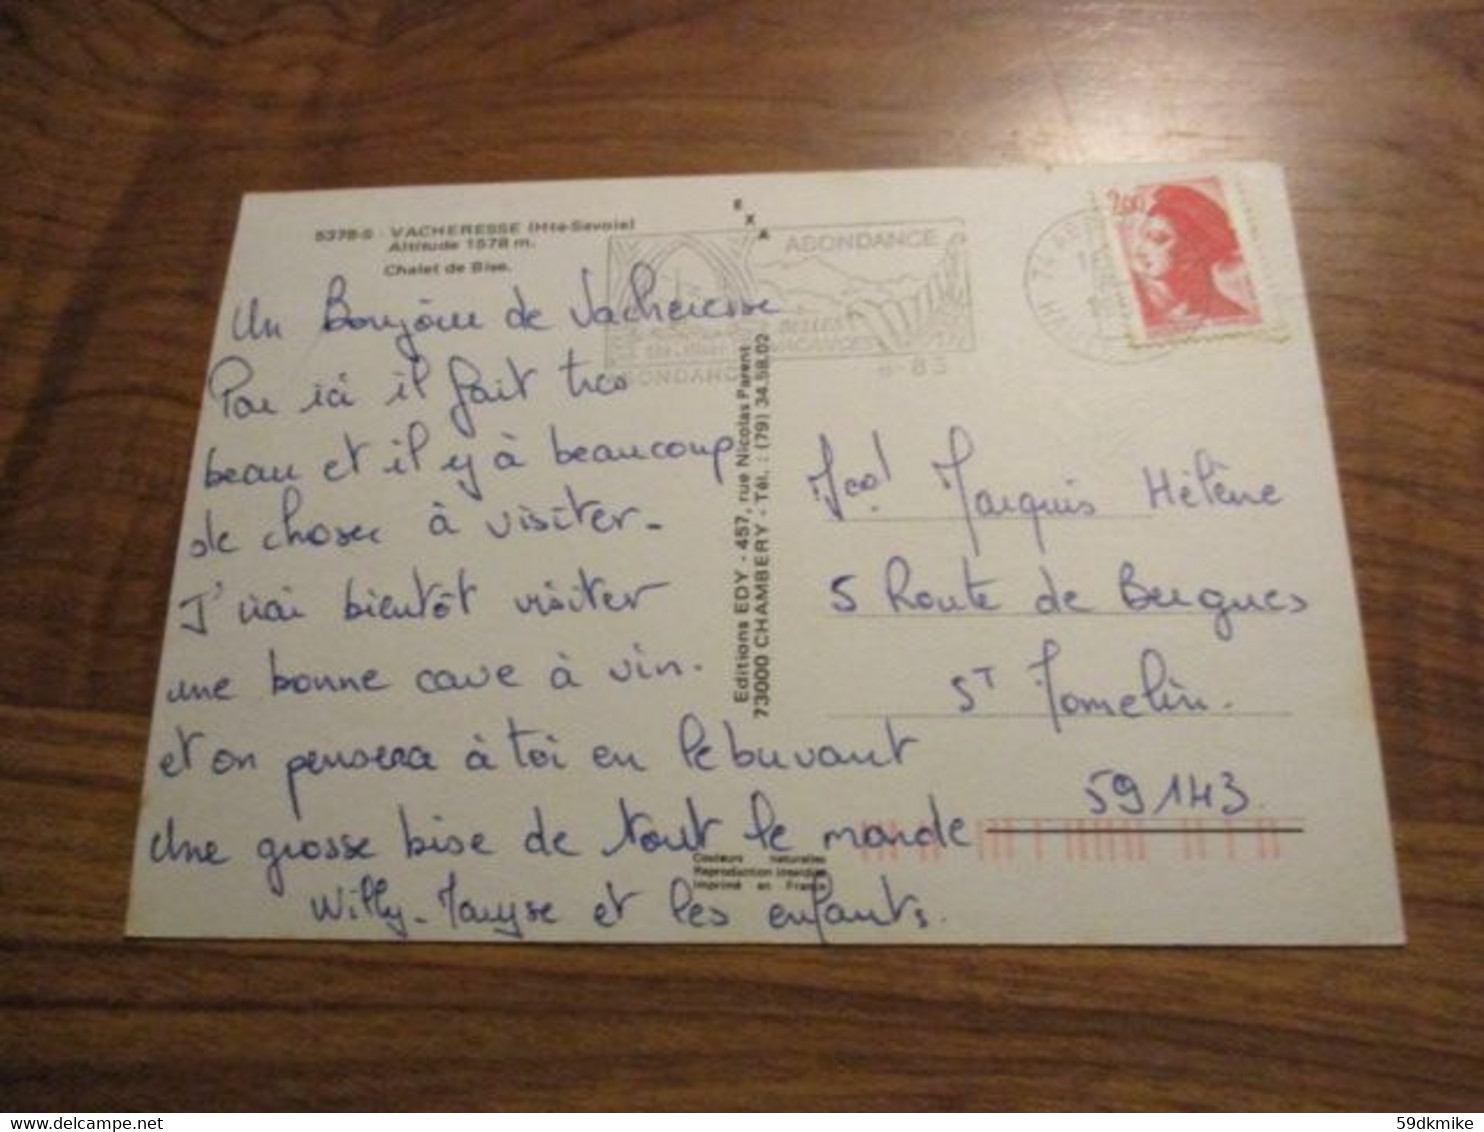 5378-S - VACHERESSE (Hte-Savoie)
Altitude 1578 m.
Chalet de Bise.
E
X
A
ABONDANCE
BELLES
VACANCES
ABONDANCE
8-85
2,00
Un Bonjour de Vacheresse
Par ici il fait tres
beau et il y à beaucoup
de choses à visiter.
J'irai bientôt visiter
une bonne cave à vin.
et on pensera à toi en le buvant
Une grosse bise de tout le monde
Willy - Maryse et les enfants.
Editions EDY - 457, rue Nicolas Parent
73000 CHAMBERY - Tél. : (79) 34.58.02
Marquis Hélène
5 Route de Bergues
ST Momelin.
59143
Couleurs naturelles
Reproduction interdite
Imprimé en France
59dkmike